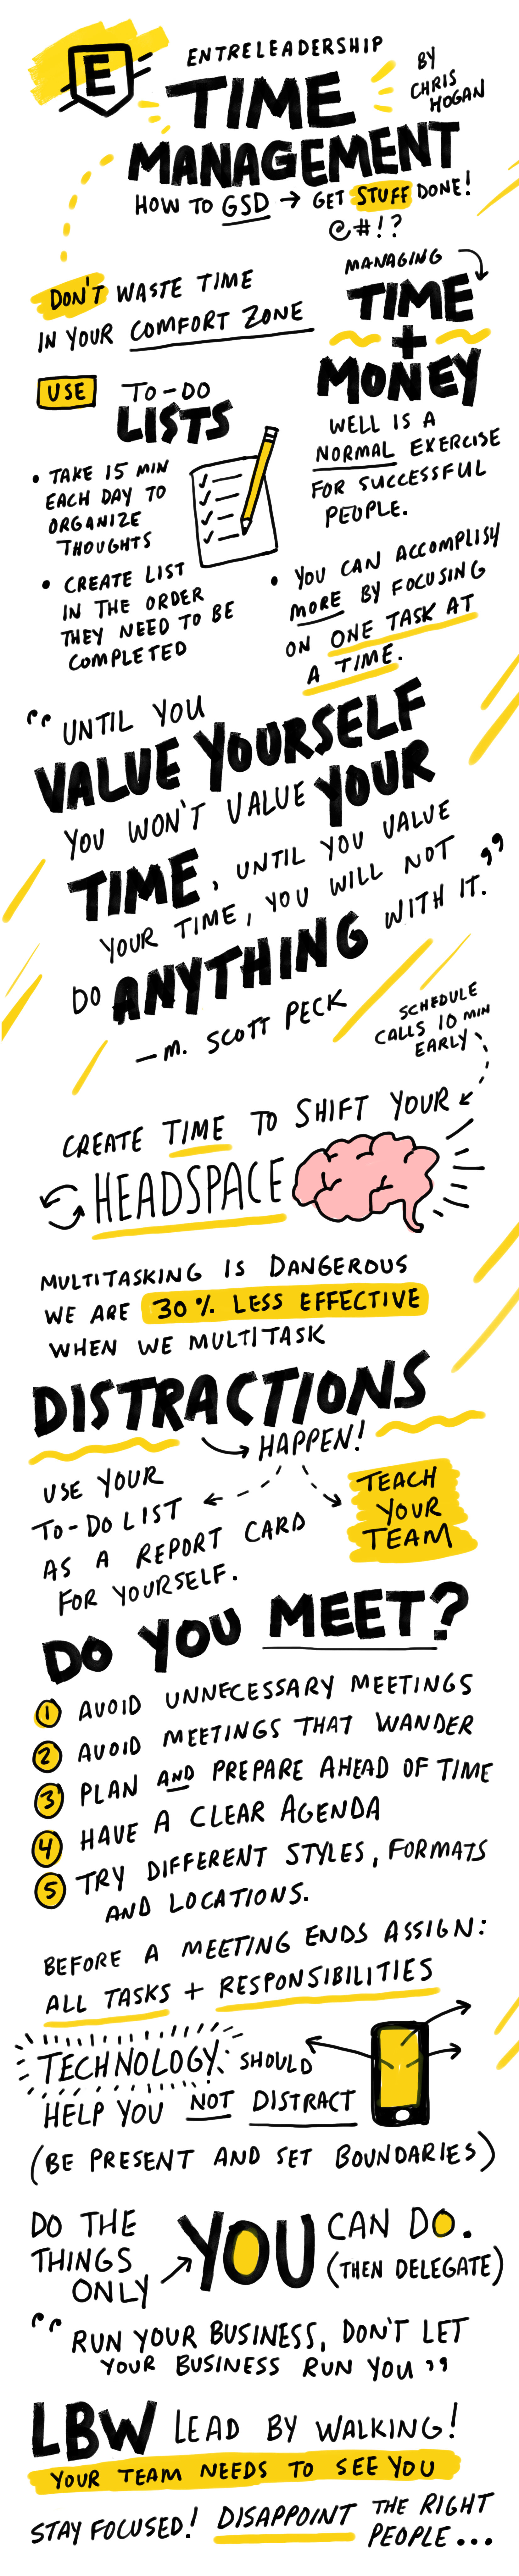 E
ENTRELEADERSHIP
TIME
MANAGEMENT
BY
CHRIS
HOGAN
HOW TO GSD → GET STUFF DONE!
@#!?
DON'T WASTE TIME
IN YOUR COMFORT ZONE
MANAGING
TIME
+
MONEY
WELL IS A
NORMAL EXERCISE
FOR SUCCESSFUL
PEOPLE.
USE TO-DO
LISTS
• TAKE 15 MIN
EACH DAY TO
ORGANIZE
THOUGHTS
• CREATE LIST
IN THE ORDER
THEY NEED TO BE
COMPLETED
• YOU CAN ACCOMPLISY
MORE BY FOCUSING
ON ONE TASK AT
A TIME.
"UNTIL YOU
VALUE YOURSELF
YOU WON'T VALUE YOUR
TIME, UNTIL YOU VALUE
YOUR TIME, YOU WILL NOT
DO ANYTHING WITH IT."
— M. SCOTT PECK
SCHEDULE
CALLS 10 MIN
EARLY
CREATE TIME TO SHIFT YOUR
HEADSPACE
MULTITASKING IS DANGEROUS
WE ARE 30% LESS EFFECTIVE
WHEN WE MULTITASK
DISTRACTIONS
→ HAPPEN!
USE YOUR
TO-DO LIST
AS A REPORT CARD
FOR YOURSELF.
TEACH
YOUR
TEAM
DO YOU MEET?
1 AVOID UNNECESSARY MEETINGS
2 AVOID MEETINGS THAT WANDER
3 PLAN AND PREPARE AHEAD OF TIME
4 HAVE A CLEAR AGENDA
5 TRY DIFFERENT STYLES, FORMATS
AND LOCATIONS.
BEFORE A MEETING ENDS ASSIGN:
ALL TASKS + RESPONSIBILITIES
TECHNOLOGY: SHOULD
HELP YOU NOT DISTRACT
(BE PRESENT AND SET BOUNDARIES)
DO THE
THINGS
ONLY
YOU
CAN DO.
(THEN DELEGATE)
"RUN YOUR BUSINESS, DON'T LET
YOUR BUSINESS RUN YOU"
LBW LEAD BY WALKING!
YOUR TEAM NEEDS TO SEE YOU
STAY FOCUSED! DISAPPOINT THE RIGHT
PEOPLE...